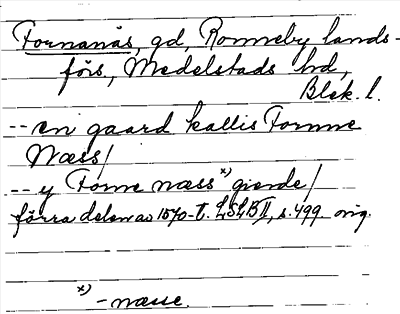 Fornanäs, gd, Ronneby lands-
förs., Medelstads hd,
Blek. l.
-- en gaard kallis Fornne
Næss/
-- y Forne næss x) gierde/
förra delen av 1570-t. LSLB II, s. 499. orig.
x) -næsse.